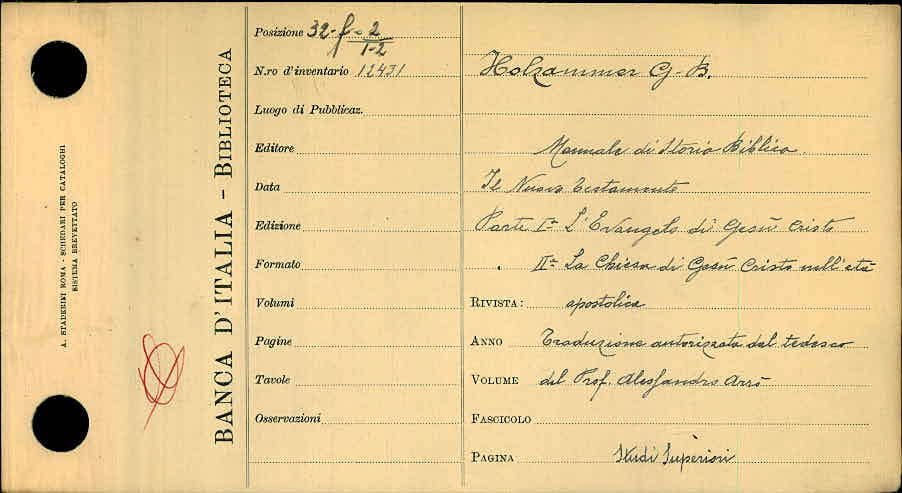 A. STADERINI ROMA - SCHEDARI PER CATALOGHI
SISTEMA BREVETTATO
BANCA D'ITALIA - BIBLIOTECA
Posizione 32-f-2
1-2
N.ro d'inventario 12431
Luogo di Pubblicaz.
Editore
Data
Edizione
Formato
Volumi
Pagine
Tavole
Osservazioni
Holzammer G. B.
Manuale di Storia Biblica
Il Nuovo Testamento
Parte Iª L'Evangelo di Gesù Cristo
IIª La Chiesa di Gesù Cristo nell'età
RIVISTA: apostolica
ANNO Traduzione autorizzata dal tedesco
VOLUME del Prof. Alessandro Arrò
FASCICOLO
PAGINA Studi Superiori